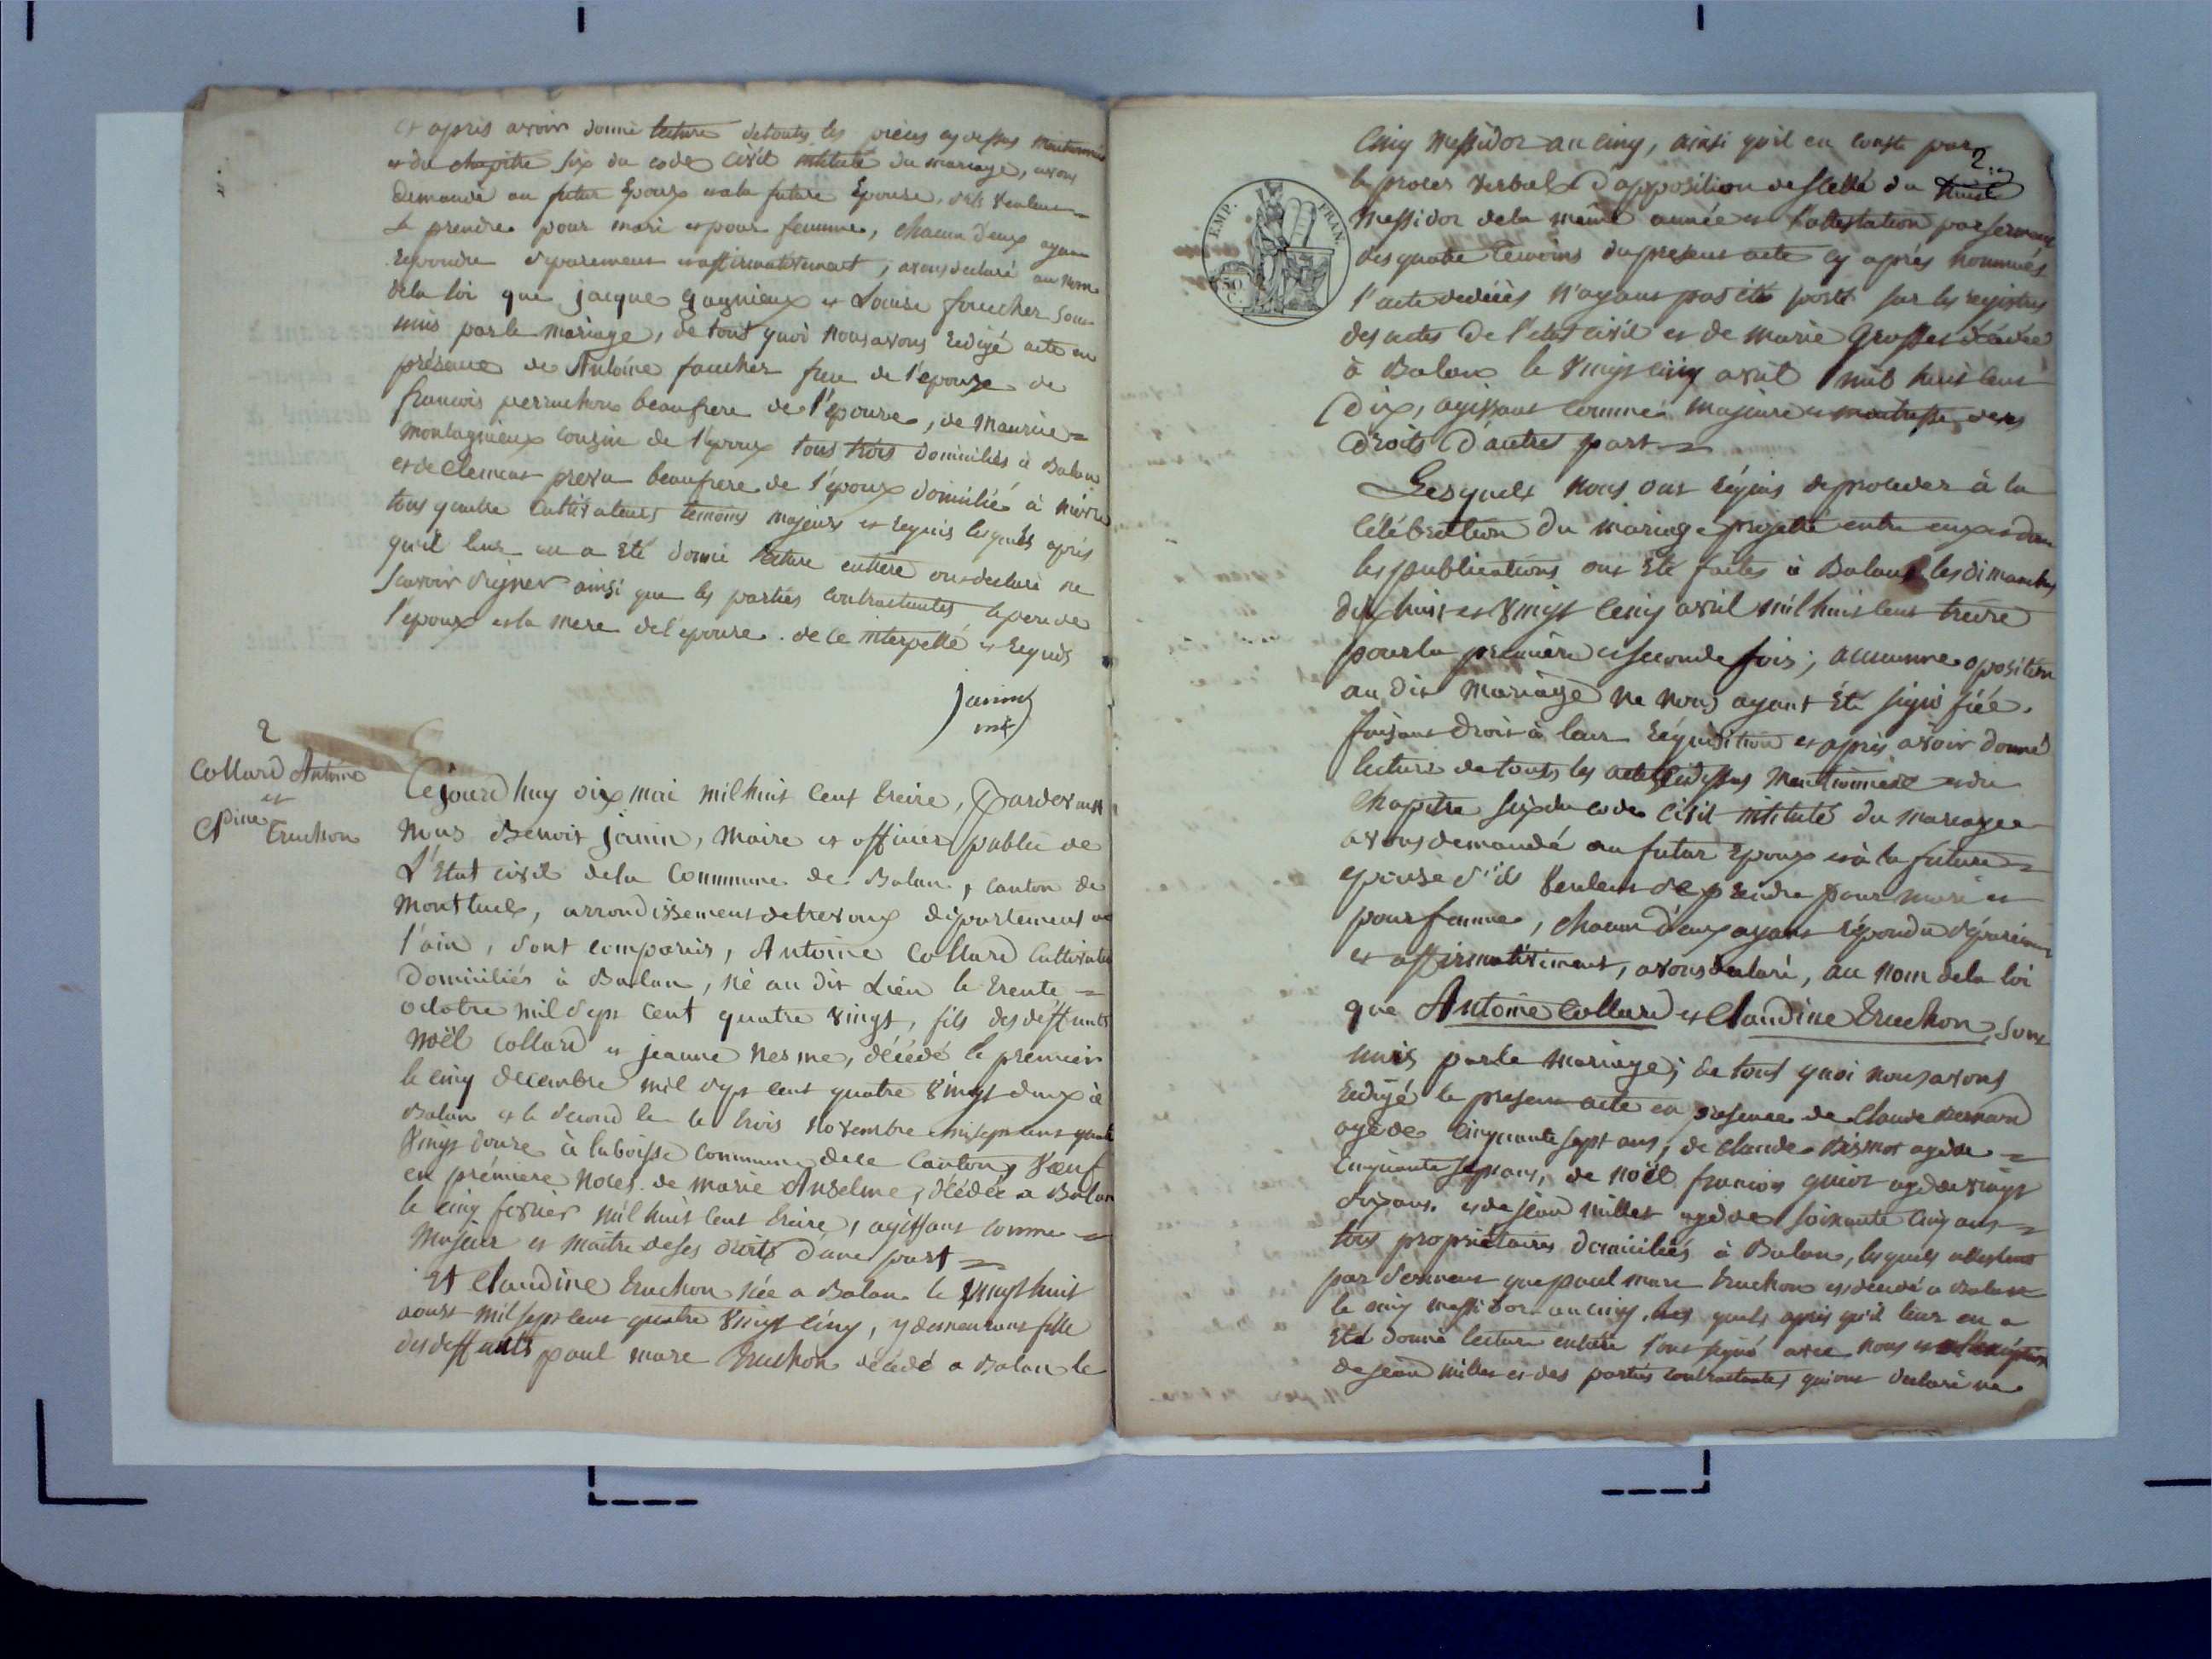 et apres avoir donné lecture detouts les pieces cy dessus mentionnés
et du chapitre six du code civil intitulé du mariage, avons
demandé au futur Epoux et a la future Epouse, s'ils veulent
se prendre pour mari et pour femme, chacun d'eux ayant
repondu séparement et affirmativement, avons declaré au nom
de la loi que jacque gagnieux et Louise foucher sont
unis par le mariage, de tout quoi nous avons redigé acte en
présence de Antoine foucher frere de l'epouse de
francois perruchon beaufrere de l'épouse, de Maurice
montagnieux cousin de l'epoux tous trois domiciliés à Balan
et de Clement beaufrere de l'époux domicilié à
tous quatre cultivateurs temoins majeurs et requis lesquels après
qu'il leur en a été donné lecture entiere ont declaré ne
scavoir signer ainsi que les parties contractantes le pere de
l'epoux et la mere de l'epouse. de ce interpellé et requis
janin
2
Collard Antoine
et
Cl dine Truchon
Cejourd huy dix mai mil huit cent treize, Pardevant
Nous Benoit janin, Maire et officier public de
L'Etat civil dela Commune de Balan, canton de
Montluel, arrondissement de trevoux département de
l'ain, sont comparus, Antoine Collard Cultivateur
Domiciliés à Balan, né au dit Lieu le trente
octobre mil sept cent quatre vingt, fils des déffunts
Noël Collard et jeanne Nesme, décédé le premier
le cinq decembre mil sept cent quatre vingt deux à
Balan et le second le le trois novembre mil sept cent quatre
vingt douze à laboisse commune de ce Canton, Vœuf
en prémiere Noces de marie Anselme, décédée a Balan
le cinq fevrier mil huit cent treize, agissant comme
Majeur et maitre de ses droits d'une part
Et Claudine Truchon née a Balan le vingt huit
aoust mil sept cent quatre vingt cinq, y demeurant fille
des deffunts paul marc Truchon décédé a Balan le
2
cinq Messidor an cinq, ainsi qu'il en conste par
le procès verbal d'apposition de scellé du
Messidor dela même année et l'attestation par serment
des quatre temoins du present acte cy après nommés
l'acte de décès n'ayant pas été porté sur les registres
des actes de l'etat civil et de marie décédée
à Balan le vingt cinq avril mil huit cent
dix, agissant comme majeure et maitresse de ses
droits d'autre part
EMP. FRAN.
50 C.
Lesquels nous ont réquis de proceder à la
célébration du mariage projetté entre eux et dont
les publications ont été faites à Balan les dimanches
dix huit et vingt cinq avril mil huit cent treize
pour la première et seconde fois; aucunne oposition
au dit mariage ne nous ayant été signifiée.
faisant droit à leur réquisition et après avoir donné
lecture de touts les actes cidessus mentionnés et du
Chapitre six du code civil intitulé du mariage
avons demandé au futur epoux et à la future
epouse s'ils veulent se prendre pour mari et
pour femme, chacun d'eux ayant répondu séparément
et affirmativement, avons declaré, au nom dela loi
que Antoine Collard et Claudine Truchon, sont
unis par le mariage; de tout quoi nous avons
redigé le present acte en presence de Claude Bernard
agé de cinquante sept ans, de claude agé de
cinquante sept ans, de noël francois agé de vingt
six ans. et de jean millet agé de soixante cinq ans
tous proprietaires domiciliés à Balan, lesquels attestent
par serment que paul marc truchon est decédé a Balan
le cinq messidor an cinq, les quels après qu'il leur en a
été donné lecture entière l'ont signé avec nous et à l'exception
de jean millet et des parties contractantes qui ont declaré ne